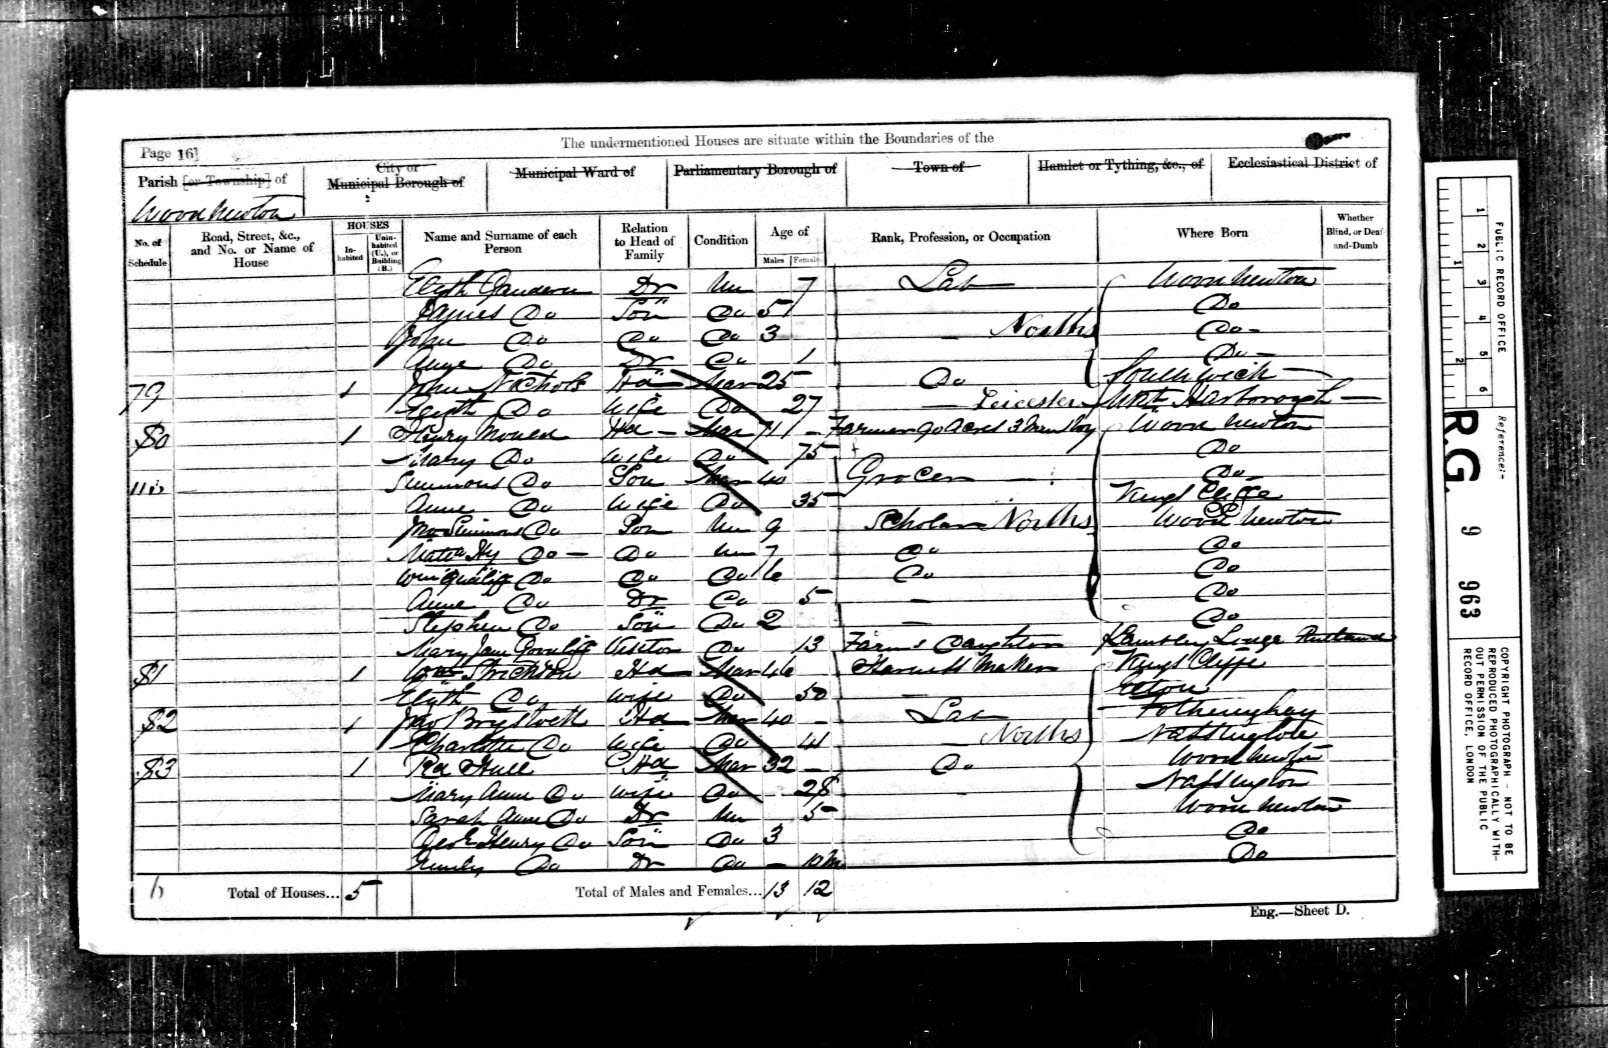 The undermentioned Houses are situate within the Boundaries of the
Page 16]
Parish [or Township] of
City or
Municipal Borough of
Municipal Ward of
Parliamentary Borough of
Town of
Hamlet or Tything, &c., of
Ecclesiastical District of
Wood Newton
No. of Schedule
Road, Street, &c., and No. or Name of House
HOUSES
In-habited
Unin-habited (U.), or Building (B.)
Name and Surname of each Person
Relation to Head of Family
Condition
Age of
Males
Females
Rank, Profession, or Occupation
Where Born
Whether Blind, or Deaf-and-Dumb
Dr Un 7 Lab Wood Newton
James Do Son Do 5 Do
John Do Do Do 3 Norths Do
Anne Do Dr Do 1 Do
79 1 John Nichols Hd Mar 25 Do Southwick
Do Wife Do 27 Leicester Harborough
80 1 Henry Hd Mar 71 Farmer 90 Acres 3 Men 1 boy Wood Newton
Mary Do Wife Do 75 Do
Simmons Do Son Mar 40 Grocer Do
Anne Do Wife Do 35 Kings Cliffe
Jno Simmons Do Son Un 9 Scholar Norths Wood Newton
Do Do Un 7 Do Do
Do Do Do 6 Do Do
Anne Do Dr Do 5 Do
Stephen Do Son Do 2 Do
Mary Jane Visitor Do 13 Farmers Daughter Lodge Rutland
81 1 Hd Mar 46 Harness Maker Kings Cliffe
Do Wife Do 50
82 1 Jno Hd Mar 40 Lab Fotheringhay
Charlotte Do Wife Do 41 Norths
83 1 Hull Hd Mar 32 Do Wood Newton
Mary Anne Do Wife Do 28 Nassington
Sarah Anne Do Dr Un 5 Wood Newton
Geo Henry Do Son Do 3 Do
Do Dr Do 10m Do
Total of Houses... 5
Total of Males and Females... 13 12
Eng.—Sheet D.
PUBLIC RECORD OFFICE
1 2 3 4 5 6
1 2
Reference:-
R.G. 9 963
COPYRIGHT PHOTOGRAPH - NOT TO BE
REPRODUCED PHOTOGRAPHICALLY WITH-
OUT PERMISSION OF THE PUBLIC
RECORD OFFICE, LONDON